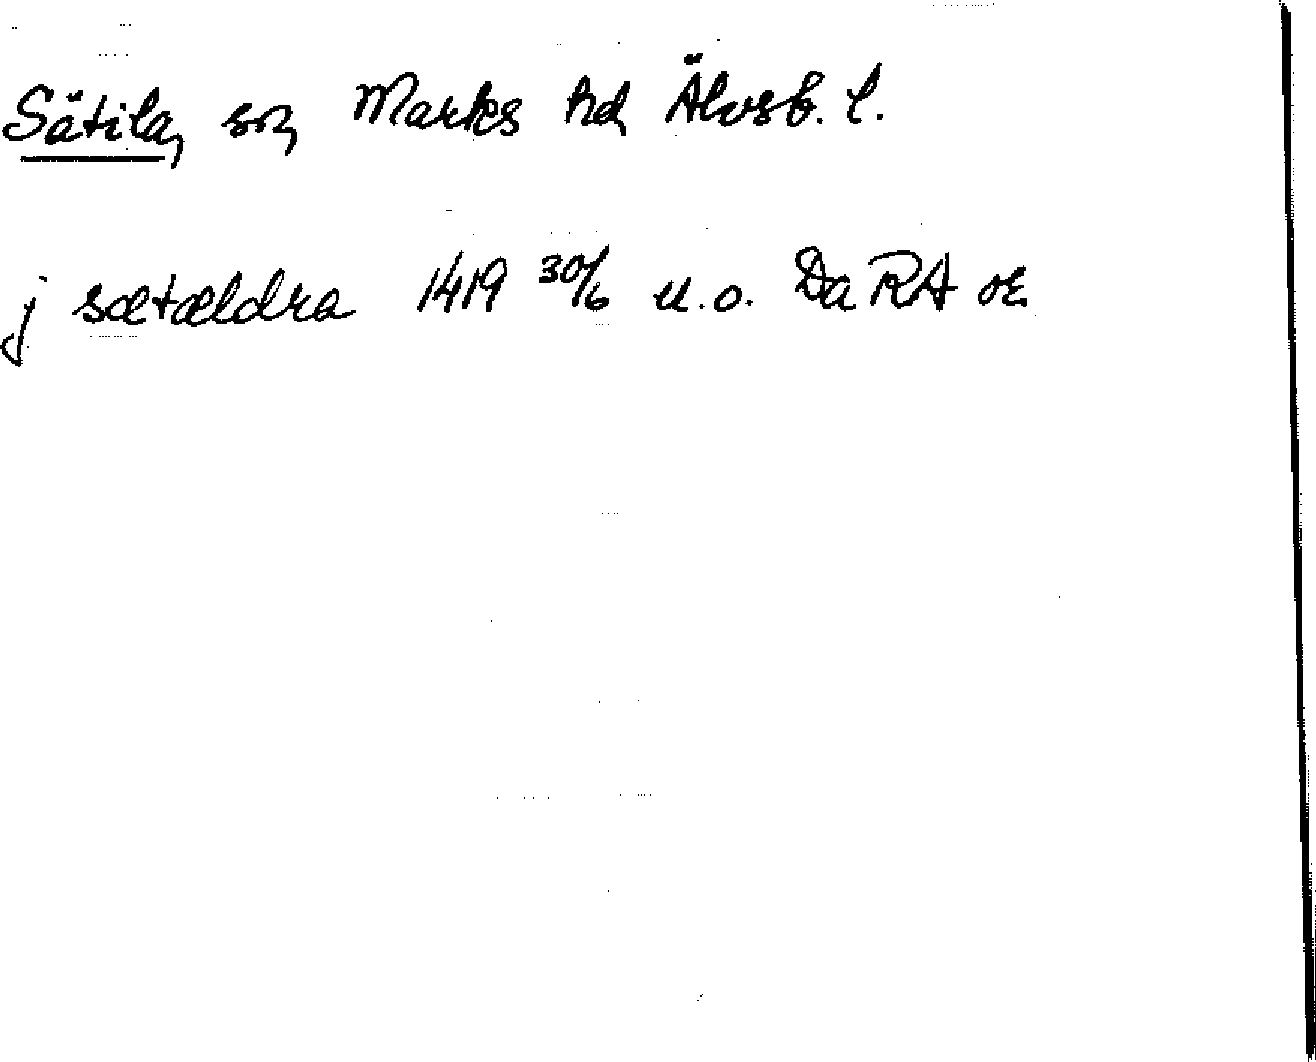 Sätila, sn, Marks hd, Älvsb. l.
j sætældra 1419 30/6 u.o. DaRA or